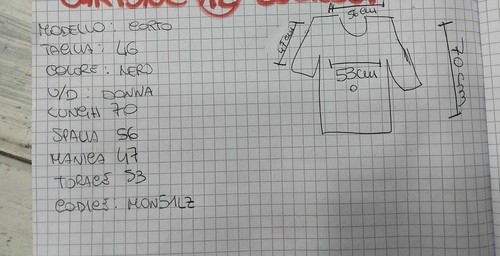 MODELLO: CORTO
TAGLIA: 46
COLORE: NERO
U/D: DONNA
LUNGH 70
SPALLA 56
MANICA 47
TORACE 53
CODICE: MON51LZ
56cm
47cm
53cm
70cm